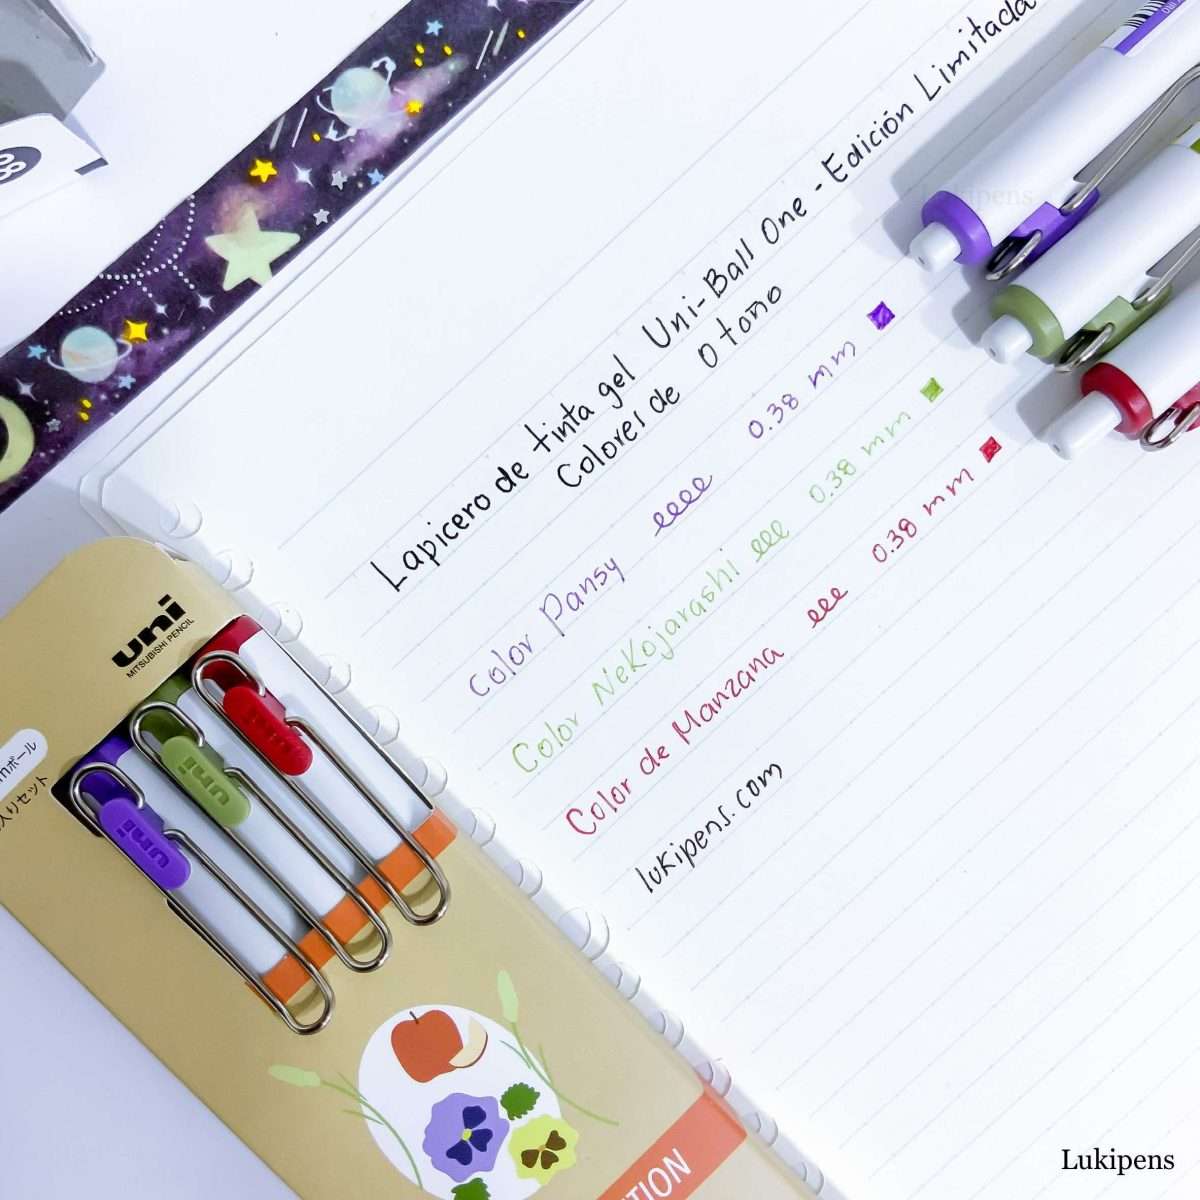 Lapicero de tinta gel Uni-Ball One - Edición Limitada
Colores de Otoño
Color Pansy 0.38 mm
Color Nekojarashi 0.38 mm
Color de Manzana 0.38 mm
lukipens.com
uni
MITSUBISHI PENCIL
mボール
入りセット
uni
uni
uni
Lukipens
Lukipens